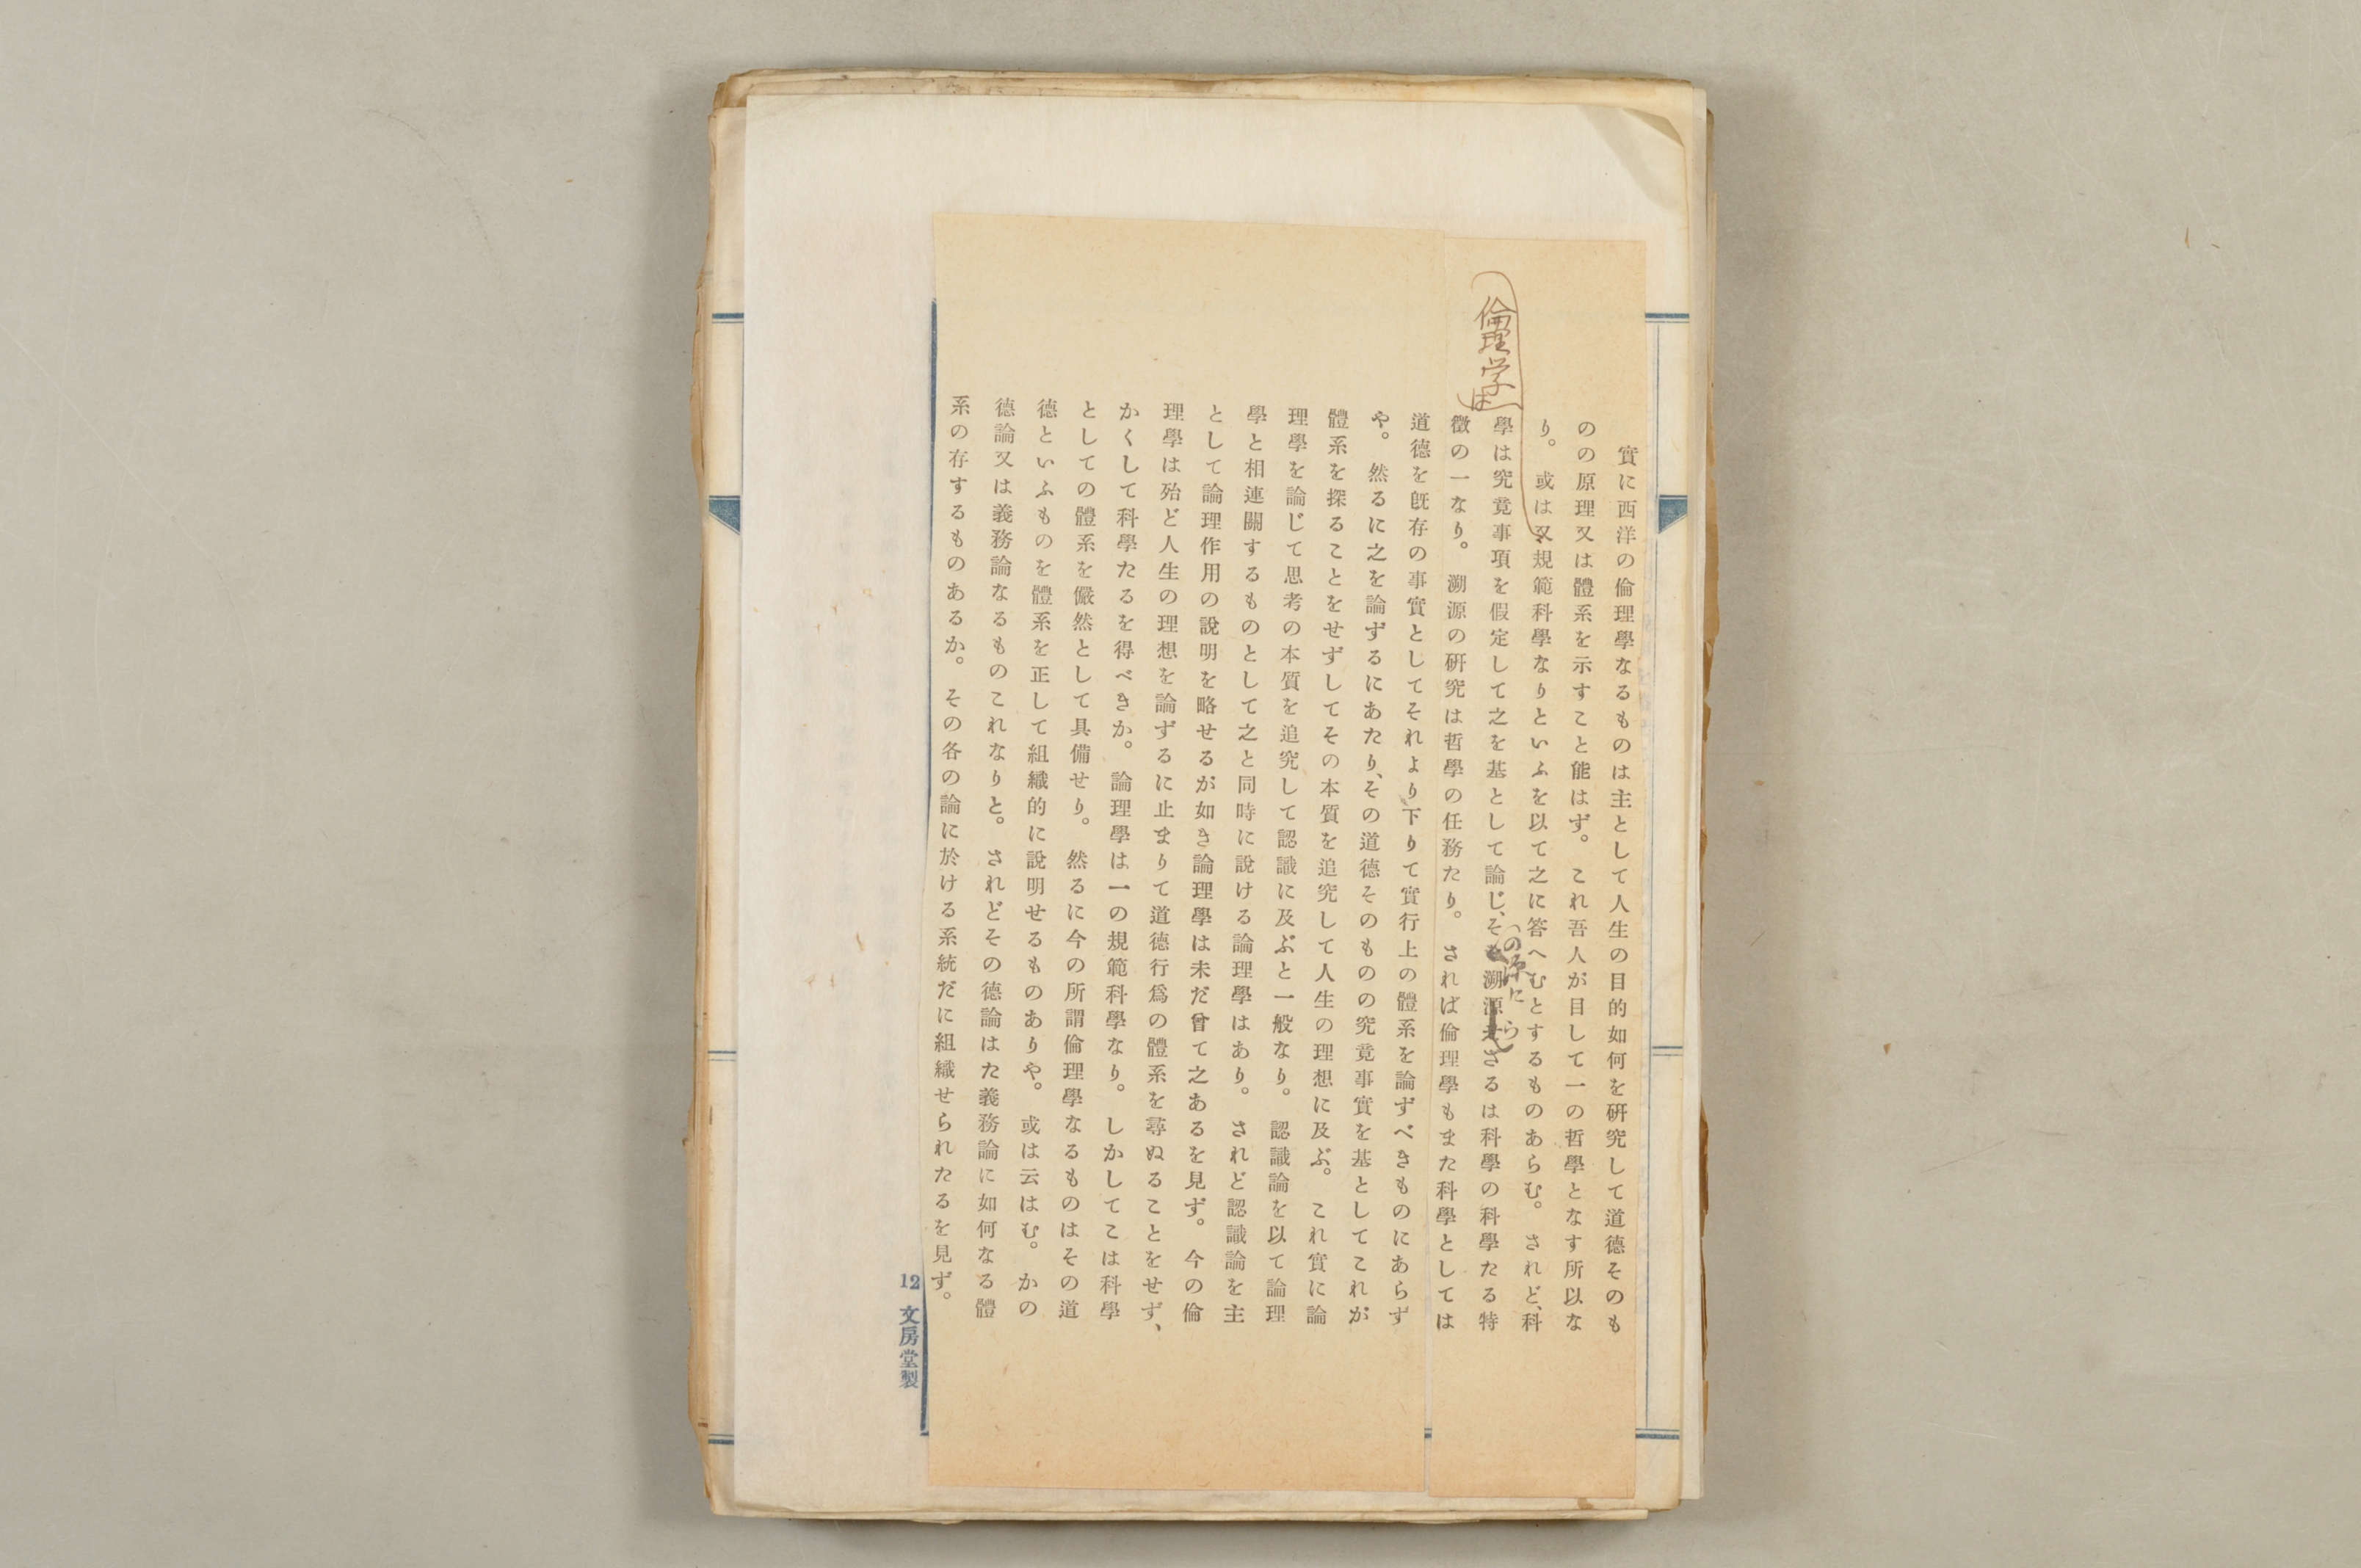 實に西洋の倫理學なるものは主として人生の目的如何を硏究して道德そのも
のの原理又は體系を示すこと能はず。これ吾人が目して一の哲學となす所以な
り。或は又規範科學なりといふを以て之に答へむとするものあらむ。されど、科
倫理学は
學は究竟事項を假定して之を基として論じ、その源に溯らざるは科學の科學たる特
徵の一なり。溯源の硏究は哲學の任務たり。されば倫理學もまた科學としては
道德を旣存の事實としてそれより下りて實行上の體系を論ずべきものにあらず
や。然るに之を論ずるにあたり、その道德そのものの究竟事實を基としてこれが
體系を探ることをせずしてその本質を追究して人生の理想に及ぶ。これ實に論
理學を論じて思考の本質を追究して認識に及ぶと一般なり。認識論を以て論理
學と相連關するものとして之と同時に說ける論理學はあり。されど認識論を主
として論理作用の說明を略せるが如き論理學は未だ曾て之あるを見ず。今の倫
理學は殆ど人生の理想を論ずるに止まりて道德行爲の體系を尋ぬることをせず、
かくして科學たるを得べきか。論理學は一の規範科學なり。しかしてこは科學
としての體系を儼然として具備せり。然るに今の所謂倫理學なるものはその道
德といふものを體系を正して組織的に說明せるものありや。或は云はむ。かの
德論又は義務論なるものこれなりと。されどその德論はた義務論に如何なる體
系の存するものあるか。その各の論に於ける系統だに組織せられたるを見ず。
12 文房堂製